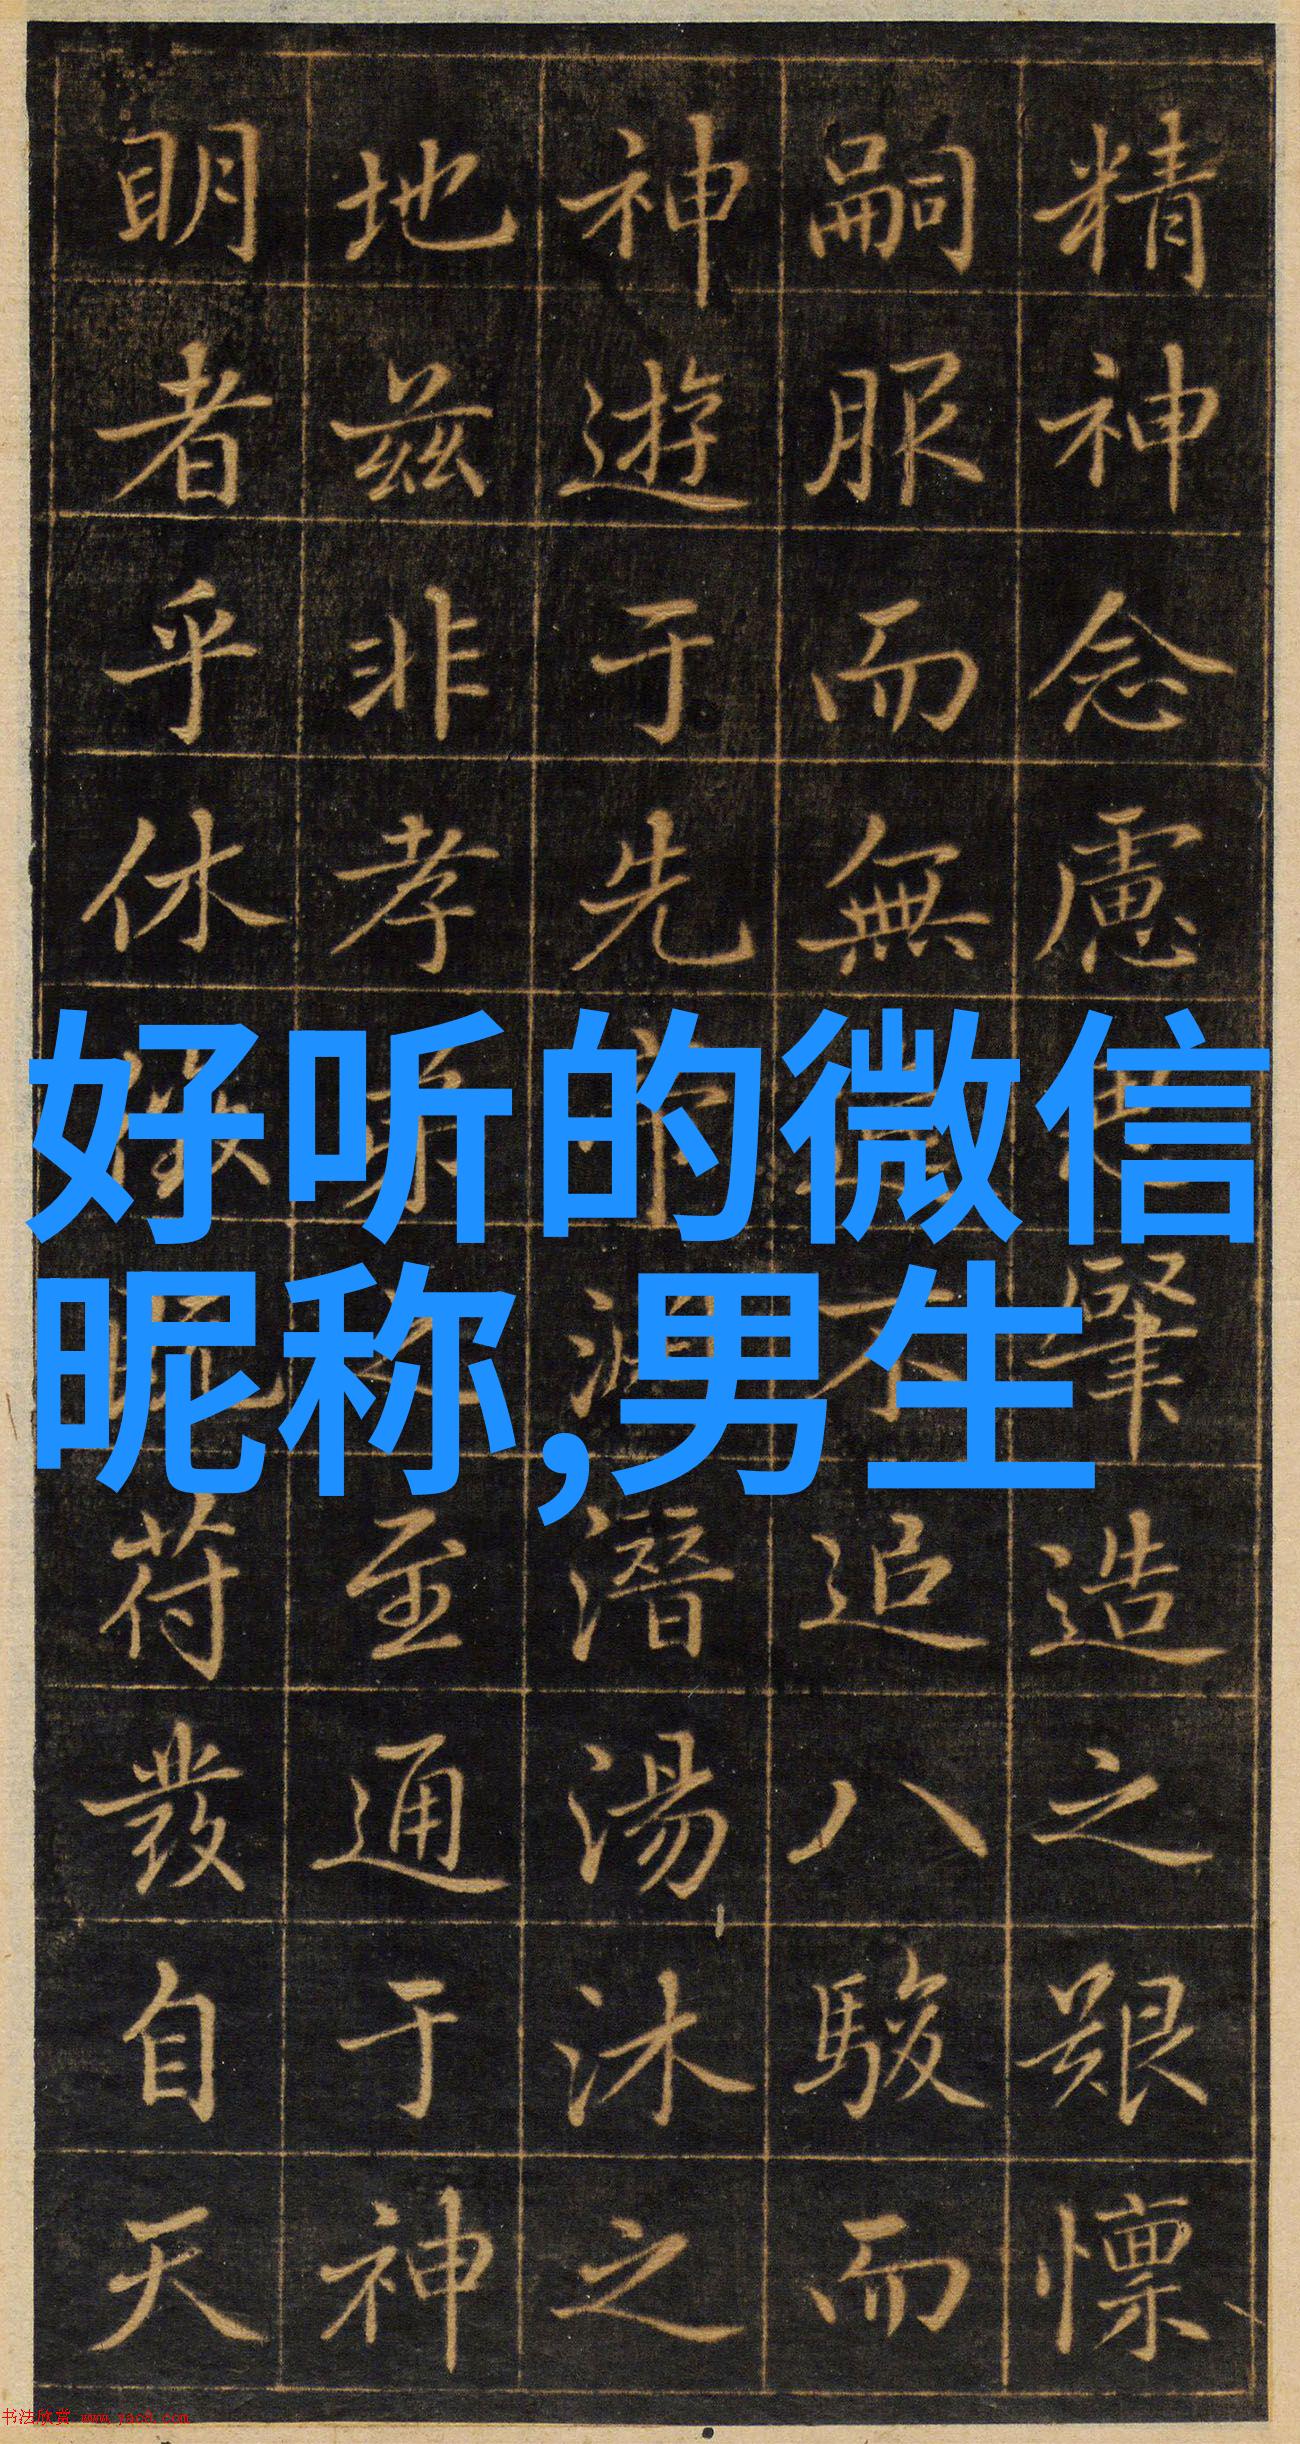 好听的微信
昵称,男生
精神念慮肇造之艱懍
嗣服而無不追八駿而
神遊于先潛湯沐之
地兹非孝弟之至通于神
明者乎休苻發自天
书法欣赏 www.yac8.com